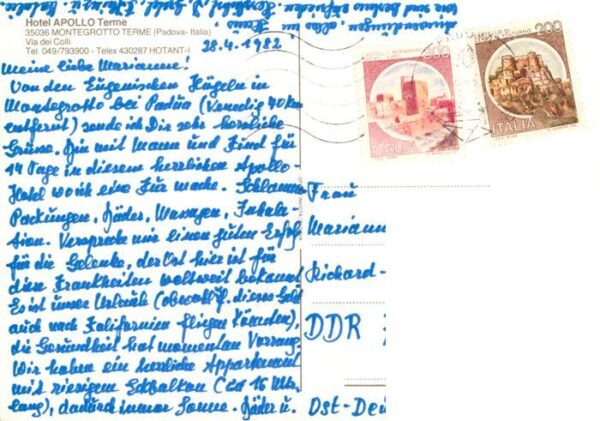 Hotel APOLLO Terme
35036 MONTEGROTTO TERME (Padova-Italia)
Via dei Colli
Tel. 049/793900 - Telex 430287 HOTANT-I
28.4.1982
Meine liebe Marianne!
Von den Euganeischen Hügeln in
Montegrotto bei Padua (Venedig 40 km
entfernt) sende ich Dir sehr herzliche
Grüsse. Bin mit Mann und Kind für
14 Tage in diesem herrlichen Apollo-
Hotel wo ich eine Kur mache. Schlamm
Packungen, Bäder, Massagen, Inhala-
tion. Verspreche mir einen guten Erfolg
für die Gelenke, der Ort hier ist für
diese Krankheiten weltweit bekannt
Es ist unser Urlaub (obwohl f. dieses Geld
auch nach Kalifornien fliegen könnten),
die Gesundheit hat momentan Vorrang.
Wir haben ein herrliche Appartement
mit riesigem Eckbalkon (ca 15 Mtr.
lang), dadurch immer Sonne. Bäder u.
300
ITALIA
200
ITALIA
Frau
Mariann
Richard-
DDR
Ost-Deu